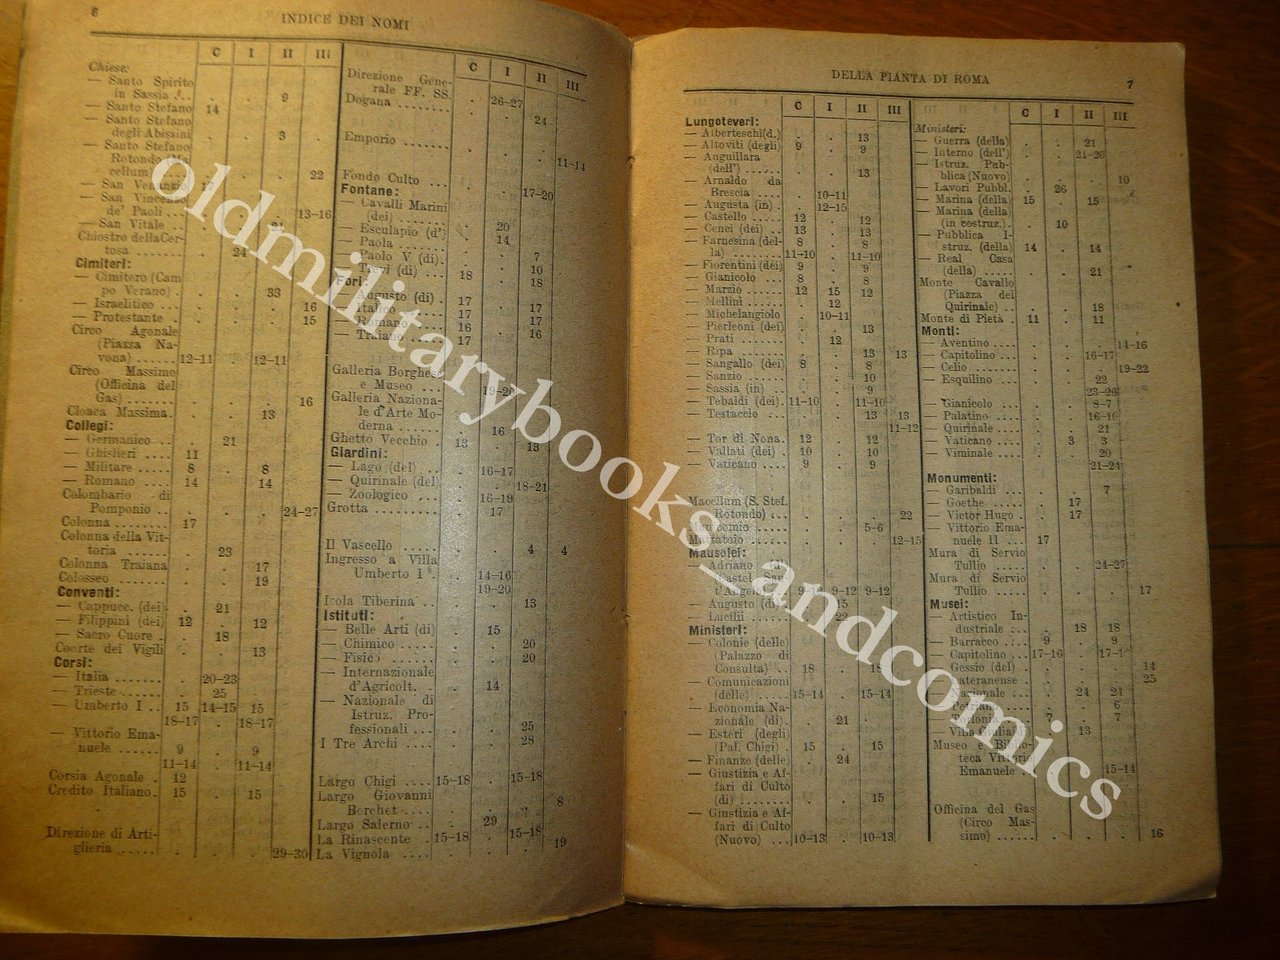 6
INDICE DEI NOMI
C I II III
Chiese:
— Santo Spirito
in Sassia . . . . 9
— Santo Stefano 14
— Santo Stefano
degli Abissini . . 3 .
— Santo Stefano
Rotondo
. . . 22
— San Venanzio
— San Vincenzo
de' Paoli . . . . . 13-16
— San Vitale . . .
Chiostro della Cer-
tosa . . . . . . . 24
Cimiteri:
— Cimitero (Cam
po Verano) . . . 33
— Israelitico . . . . . 16
— Protestante . . . . 15
Circo Agonale
(Piazza Na-
vona) . . . . . . 12-11 . 12-11
Circo Massimo
(Officina del
Gas) . . . . . . 16
Cloaca Massima. . . 13
Collegi:
— Germanico . . . 21
— Ghislieri . . . 11
— Militare . . . 8 . 8
— Romano . . . . 14 . 14
Colombario di
Pomponio . . . . . 24-27
Colonna . . . . . . 17
Colonna della Vit-
toria . . . . . . . 23
Colonna Traiana . . 17
Colosseo . . . . . . . 19
Conventi:
— Cappucc. (dei) . 21
— Filippini (dei) 12 . 12
— Sacro Cuore . . 18
Coorte dei Vigili . . 13
Corsi:
— Italia . . . . . . . 20-23
— Trieste . . . . . . . 25
— Umberto I . . 15 14-15 15
18-17 . 18-17
— Vittorio Ema-
nuele . . . . . . 9 . 9
11-14 . 11-14
Corsia Agonale . 12
Credito Italiano. 15 . 15
Direzione di Arti-
glieria . . . . . 29-30
C I II III
Direzione Gene-
rale FF. SS. . 26-27
Dogana . . . . . . . . . 24
Emporio . . . . . . . . 11-14
Fondo Culto . . . . . 17-20
Fontane:
— Cavalli Marini
(dei) . . . . . . . 20
— Esculapio (d') . 14
— Paola . . . . . . . . 7
— Paolo V (di). . . 10
— Trevi (di) . . . 18 . 18
Fori:
— Augusto (di) . 17 . 17
— Italico 17 . 17
— Romano 16 . 16
— Traiano . . . . 17
Galleria Borghese
e Museo . . . . 19-20
Galleria Naziona-
le d'Arte Mo-
derna . . . . . . . 16
Ghetto Vecchio . 13 . 13
Giardini:
— Lago (del) . . . . 16-17
— Quirinale (del) . . 18-21
— Zoologico . . . . 16-19
Grotta . . . . . . . . . 17
Il Vascello . . . . . . . 4 4
Ingresso a Villa
Umberto I . . . 14-16
19-20
Isola Tiberina . . . . 13
Istituti:
— Belle Arti (di) . 15
— Chimico . . . . . . . 20
— Fisico . . . . . . 20
— Internazionale
d'Agricolt. . . 14
— Nazionale di
Istruz. Pro-
fessionali . . . . . 25
I Tre Archi . . . . . 28
Largo Chigi . . . . 15-18 . 15-18
Largo Giovanni
Berchet . . . . . . . 8
Largo Salerno . . . 29
La Rinascente . 15-18 . 15-18
La Vignola . . . . . . . 19
DELLA PIANTA DI ROMA
7
C I II III
Lungoteveri:
— Alberteschi(d.) . . 13
— Altoviti (degli) 9 . 9
— Anguillara
(dell') . . . . . . . . 13
— Arnaldo da
Brescia . . . . . 10-11
— Augusta (in) . . 12-15
— Castello . . . . . 12 . 12
— Cenci (dei) . . . 13 . 13
— Farnesina (del- 8 . 8
la) . . . . . . . 11-10 . 11-10
— Fiorentini (dei) 9 . 9
— Gianicolo . . . 8 . 8
— Marzio . . . . . 12 15 12
— Mellini . . . . . . 12
— Michelangiolo . 10-11
— Pierleoni (dei) . . 13
— Prati . . . . . . . 12
— Ripa . . . . . . . . 13 13
— Sangallo (dei) 8 . 8
— Sanzio . . . . . . . 10
— Sassia (in) . . . . . 9
— Tebaldi (dei). 11-10 . 11-10
— Testaccio . . . . . . 13 13
11-12
— Tor di Nona. 12 . 12
— Vallati (dei) . 10 . 10
— Vaticano . . . . 9 . 9
Macellum (S. Stef.
Rotondo) . . . . . . 22
Manicomio . . . . 5-6
Mattatoio . . . . . . 12-15
Mausolei:
— Adriano
Castel San
t'Angelo 9-12 9-12
— Augusto (di) 15
— Lucilii . . .
Ministeri:
— Colonie (delle)
(Palazzo di
Consulta) . . 18 . 18
— Comunicazioni
(delle) . . . . . 15-14 . 15-14
— Economia Na-
zionale (di). . . 21
— Esteri (degli)
(Pal. Chigi) . 15 . 15
— Finanze (delle) . 24
— Giustizia e Af-
fari di Culto
(di) . . . . . . . . . 15
— Giustizia e Af-
fari di Culto
(Nuovo) . . . 10-13 . 10-13
C I II III
Ministeri:
— Guerra (della) . . 21
— Interno (dell') . . 21-20
— Istruz. Pub-
blica (Nuovo) . . . 10
— Lavori Pubbl. . 26
— Marina (della) 15 . 15
— Marina (della)
(in costruz.) . . 10
— Pubblica I-
struz. (della) 14 . 14
— Real Casa
(della) . . . . . . . 21
Monte Cavallo
(Piazza del
Quirinale) . . . . 18
Monte di Pietà . 11 . 11
Monti:
— Aventino . . . . . . 14-16
— Capitolino . . . . . 16-17
— Celio . . . . . . . . 19-22
— Esquilino . . . . . 22
23-26
— Gianicolo . . . . . 8-7
— Palatino . . . . . 16-19
— Quirinale . . . . . . 21
— Vaticano . . . . . 3 3
— Viminale . . . . . . 20
21-24
Monumenti:
— Garibaldi . . . . . . 7
— Goethe . . . . . . . 17
— Victor Hugo . . 17
— Vittorio Ema-
nuele II . . . 17
Mura di Servio
Tullio . . . . . . 24-27
Mura di Servio
Tullio . . . . . . . 17
Musei:
— Artistico In-
dustriale . . . . 18 18
— Barracco . . . 9 . 9
— Capitolino . . . 17-16
— Gessio (del) . . . . 14
— Lateranense . . . . 25
24 24
6
7 . 7
— Villa Giulia 13
Museo e Biblio-
teca Vittorio
Emanuele . . . 15-14
Officina del Gas
(Circo Mas-
simo) . . . . . . . 16
oldmilitarybooks_andcomics